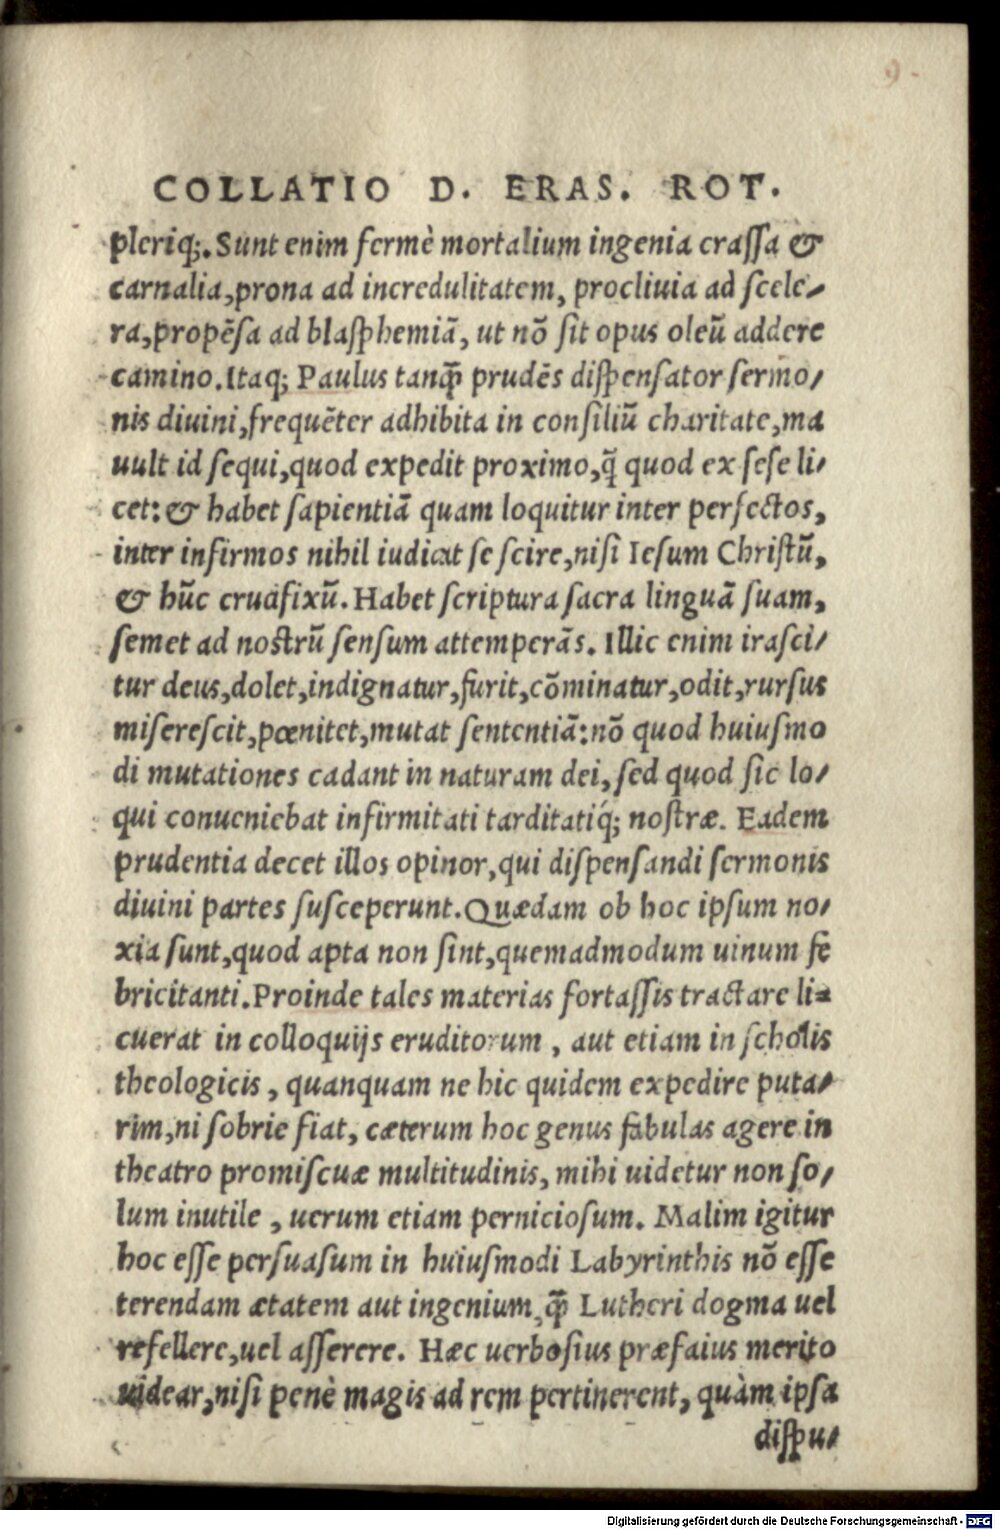 9.
COLLATIO D. ERAS. ROT.
pleriq́;. Sunt enim fermè mortalium ingenia craſſa &
carnalia, prona ad incredulitatem, procliuia ad ſcele⸗
ra, propēſa ad blaſphemiā, ut nō ſit opus oleū addere
camino. Itaq; Paulus tanq̄ꝫ prudēs diſpenſator ſermo⸗
nis diuini, frequēter adhibita in conſiliū charitate, ma
uult id ſequi, quod expedit proximo, q̄ quod ex ſeſe li⸗
cet: & habet ſapientiā quam loquitur inter perfectos,
inter infirmos nihil iudicat ſe ſcire, niſi Ieſum Chriſtū,
& hūc crucifixū. Habet ſcriptura ſacra linguā ſuam,
ſemet ad noſtrū ſenſum attemperās. Illic enim iraſci⸗
tur deus, dolet, indignatur, furit, cōminatur, odit, rurſus
miſereſcit, pœnitet, mutat ſententiā: nō quod huiuſmo
di mutationes cadant in naturam dei, ſed quod ſic lo⸗
qui conueniebat infirmitati tarditatiq́; noſtræ. Eadem
prudentia decet illos opinor, qui diſpenſandi ſermonis
diuini partes ſuſceperunt. Quædam ob hoc ipſum no⸗
xia ſunt, quod apta non ſint, quemadmodum uinum fe
bricitanti. Proinde tales materias fortaſſis tractare li⸗
cuerat in colloquijs eruditorum, aut etiam in ſcholis
theologicis, quanquam ne hic quidem expedire puta⸗
rim, ni ſobrie fiat, cæterum hoc genus fabulas agere in
theatro promiſcuæ multitudinis, mihi uidetur non ſo⸗
lum inutile, uerum etiam pernicioſum. Malim igitur
hoc eſſe perſuaſum in huiuſmodi Labyrinthis nō eſſe
terendam ætatem aut ingenium, q̄ꝫ Lutheri dogma uel
refellere, uel aſſerere. Hæc uerboſius præfatus merito
uidear, niſi penè magis ad rem pertinerent, quàm ipſa
diſpu⸗
Digitalisierung gefördert durch die Deutsche Forschungsgemeinschaft - DFG